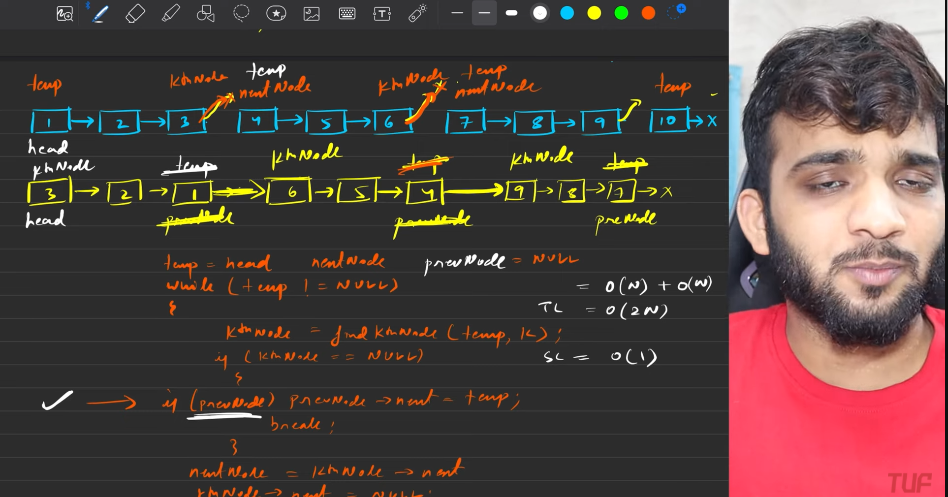 temp kthNode temp nextNode kthNode temp nextNode temp
1 2 3 4 5 6 7 8 9 10 X
head
kthNode temp kthNode temp kthNode temp
3 2 1 6 5 4 9 8 7 X
head prevNode prevNode preNode
temp = head nextNode prevNode = NULL
while (temp != NULL) = O(N) + O(N)
{ TC = O(2N)
kthNode = findKthNode (temp, K);
if (kthNode == NULL) SC = O(1)
{
if (prevNode) prevNode → next = temp;
break;
}
nextNode = kthNode → next
kthNode → next = NULL;
TUF